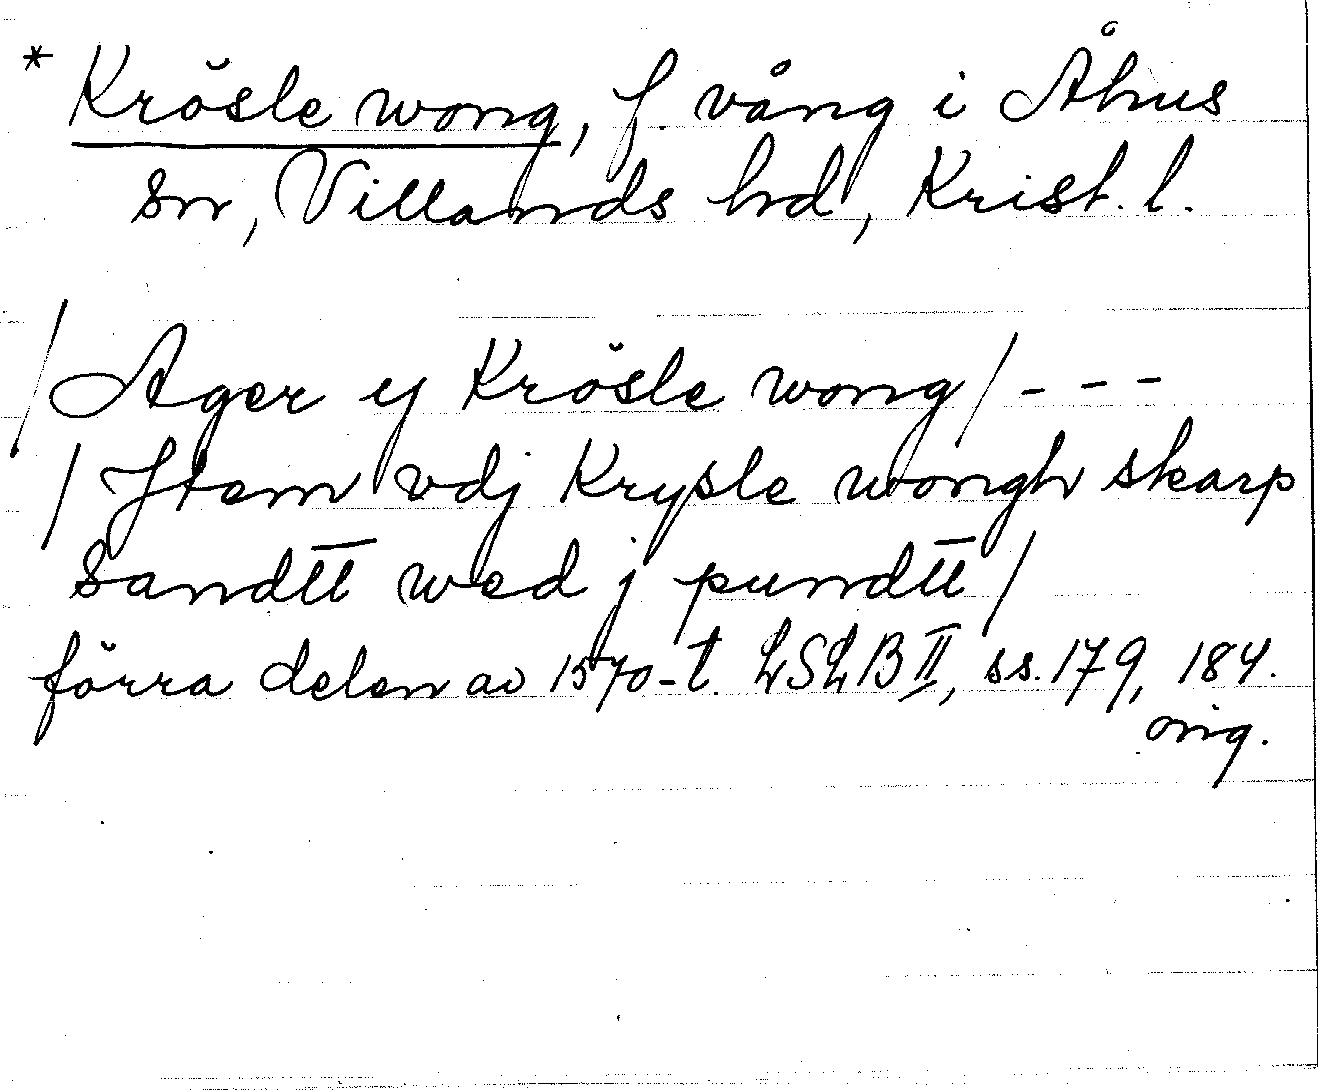 * Krösle wong, f. vång i Åhus
sn, Villands hd, Krist. l.
/ Ager y Krösle wong / - - -
/ Jtem vdj Krysle wongh skarp
Sandtt wed j pundtt /
förra delen av 1570-t. LSLB II, ss. 179, 184.
orig.